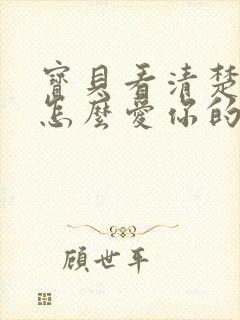 寶貝看清楚
怎麼愛你的
顧世年